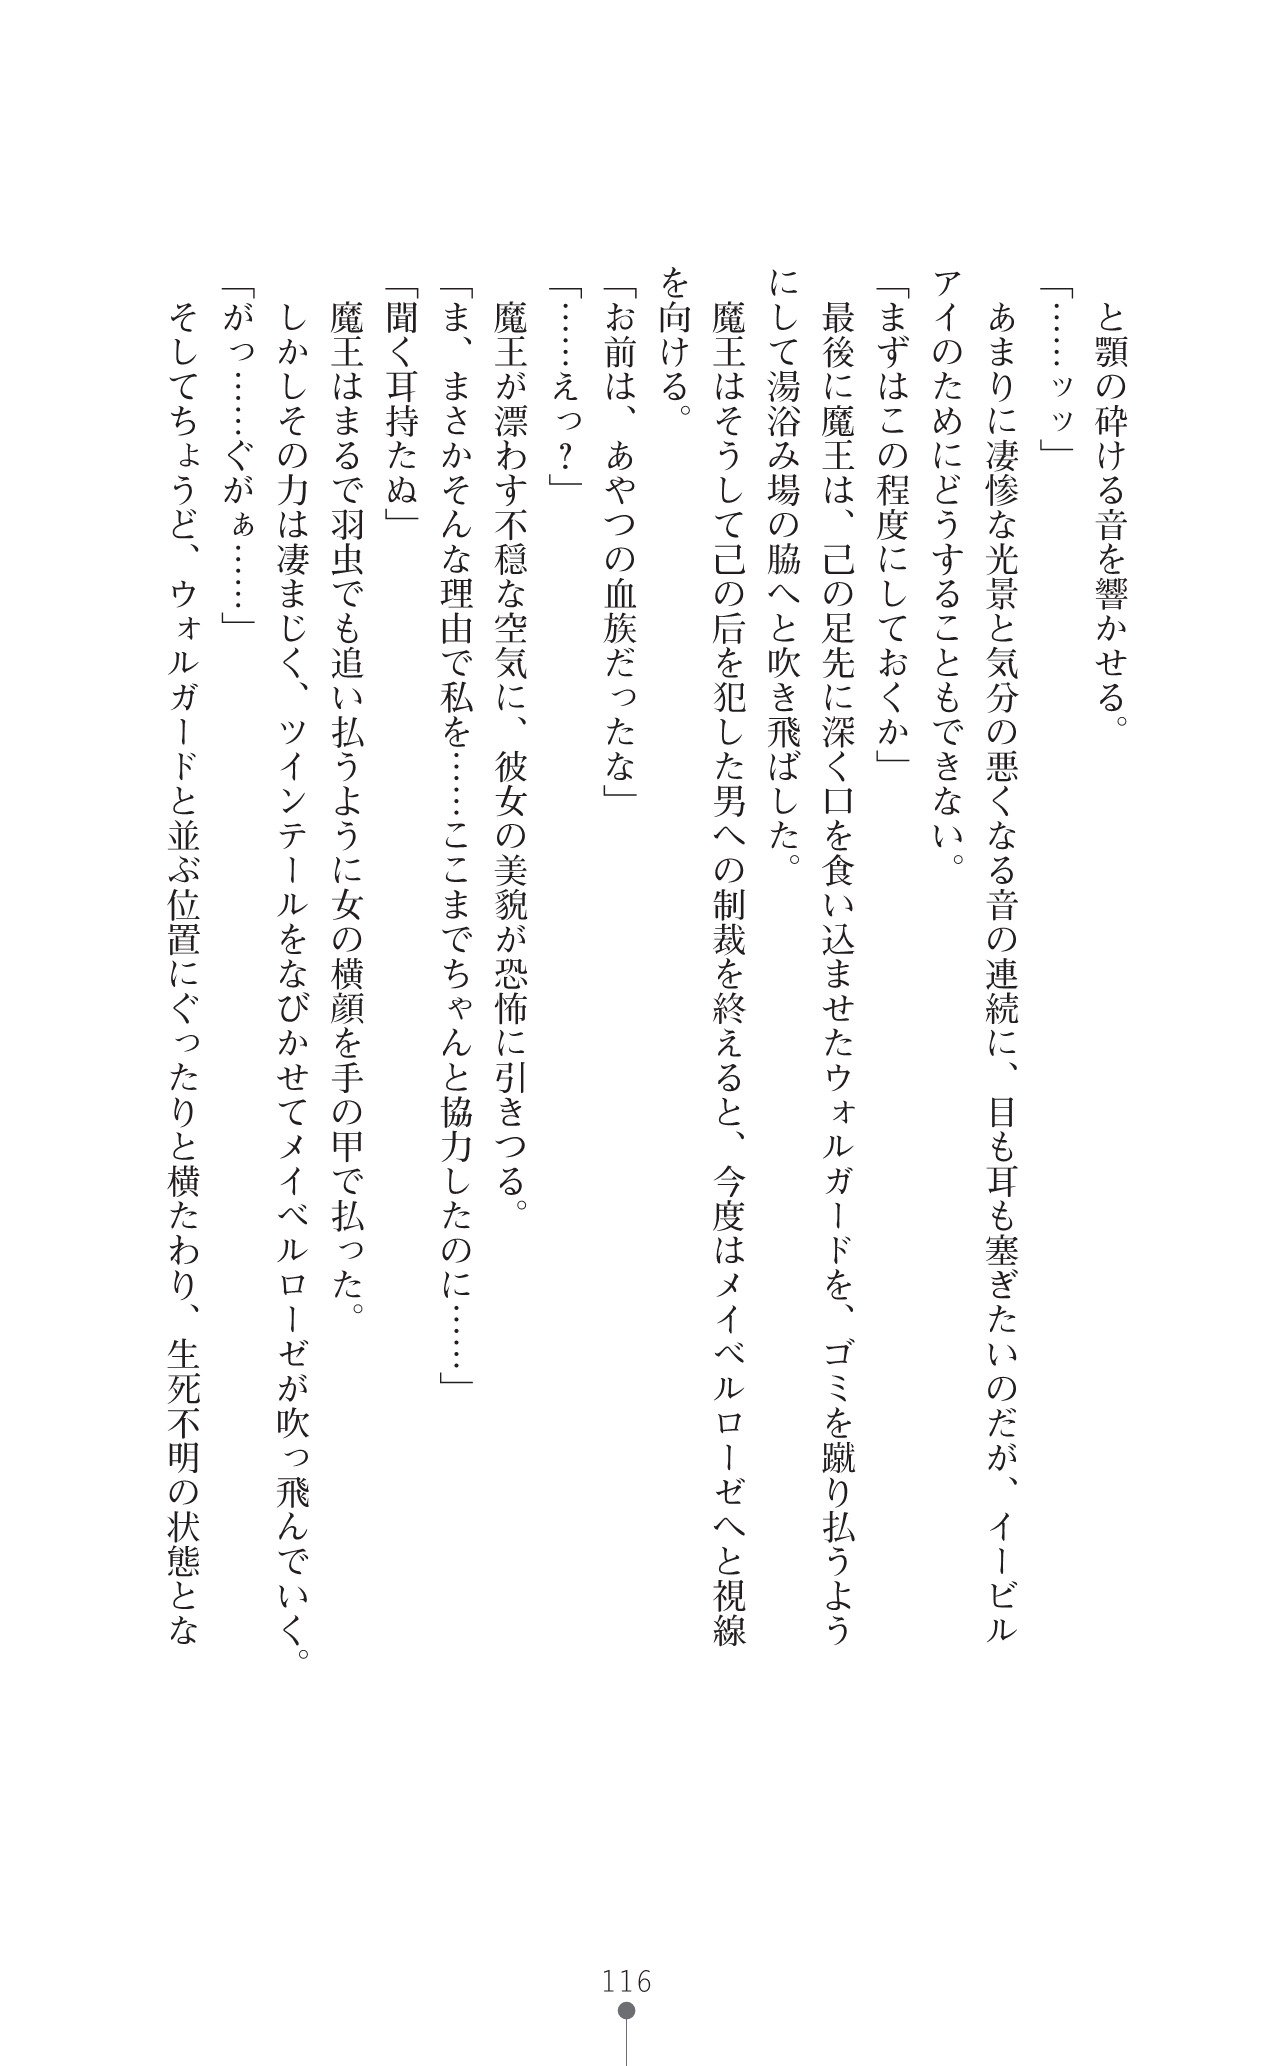 と顎の砕ける音を響かせる。
「……ッッ」
あまりに凄惨な光景と気分の悪くなる音の連続に、目も耳も塞ぎたいのだが、イービル
アイのためにどうすることもできない。
「まずはこの程度にしておくか」
最後に魔王は、己の足先に深く口を食い込ませたウォルガードを、ゴミを蹴り払うよう
にして湯浴み場の脇へと吹き飛ばした。
魔王はそうして己の后を犯した男への制裁を終えると、今度はメイベルローゼへと視線
を向ける。
「お前は、あやつの血族だったな」
「……えっ？」
魔王が漂わす不穏な空気に、彼女の美貌が恐怖に引きつる。
「ま、まさかそんな理由で私を……ここまでちゃんと協力したのに……」
「聞く耳持たぬ」
魔王はまるで羽虫でも追い払うように女の横顔を手の甲で払った。
しかしその力は凄まじく、ツインテールをなびかせてメイベルローゼが吹っ飛んでいく。
「がっ……ぐがぁ……」
そしてちょうど、ウォルガードと並ぶ位置にぐったりと横たわり、生死不明の状態とな
116